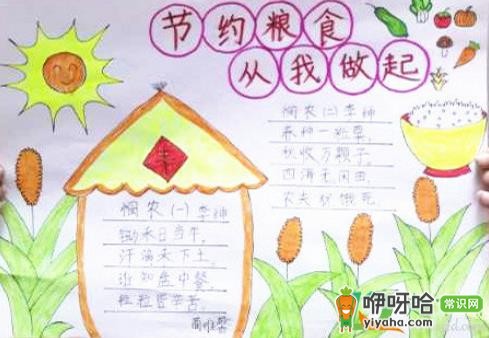 节约粮食
从我做起
悯农(二)李绅
春种一粒粟,
秋收万颗子。
四海无闲田,
农夫犹饿死。
悯农(一)李绅
锄禾日当午,
汗滴禾下土。
谁知盘中餐,
粒粒皆辛苦。
丰
咿呀哈
常识网
yiyaha.com